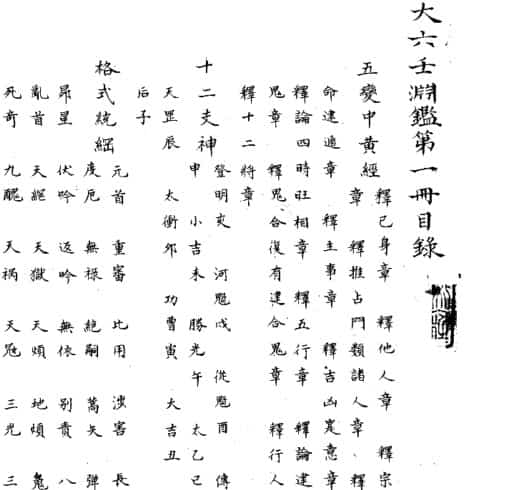 大六壬淵鑑第一冊目錄
五變中黃經
釋己身章 釋他人章 釋宗
章 釋推占門類諸人章 釋
命逮遁章 釋主事章 釋吉凶定意章
釋論四時旺相章 釋五行章 釋論逮
鬼章 釋鬼合復有逮合鬼章 釋行人
釋十二將章
十二支神
登明亥 河魁戌 從魁酉 傳
申 小吉未 勝光午 太乙巳
天罡辰 太衝卯 功曹寅 大吉丑
后子
格式統綱
元首 重審 比用 涉害 長
度厄 無祿 絕嗣 蒿矢 彈
昴星 伏吟 返吟 無依 別責 八
亂首 天網 天獄 天煩 地煩 鬼
死奇 九醜 天禍 天寇 三光 三